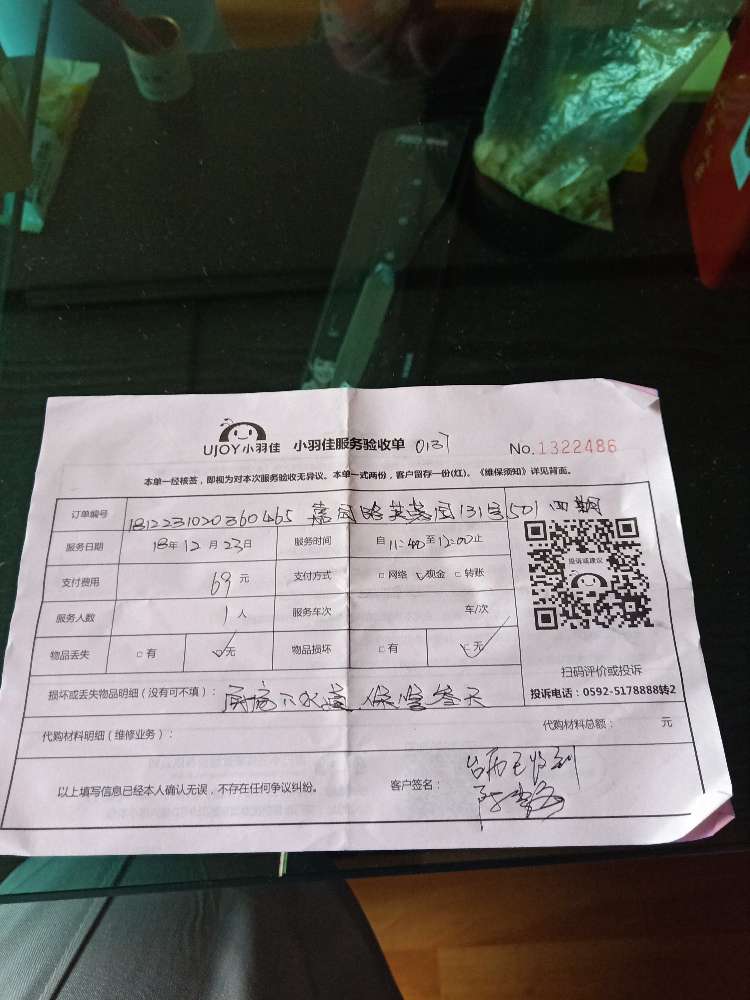 UJOY小羽佳 小羽佳服务验收单 0137 No.1322486
本单一经核签，即视为对本次服务验收无异议。本单一式两份，客户留存一份(红)。《维保须知》详见背面。
订单编号 1812231020360465 嘉园路英慧园131号501 四期
服务日期 18年12月23日 服务时间 自11:40至12:00止
支付费用 69元 支付方式 □网络 □现金 □转账
服务人数 1人 服务车次 车/次
物品丢失 □有 □无 物品损坏 □有 □无
投诉或建议
扫码评价或投诉
投诉电话：0592-5178888转2
损坏或丢失物品明细（没有可不填）： 厨房下水道 保 叁天
代购材料明细（维修业务）： 代购材料总额： 元
以上填写信息已经本人确认无误，不存在任何争议纠纷。 客户签名：
已收到